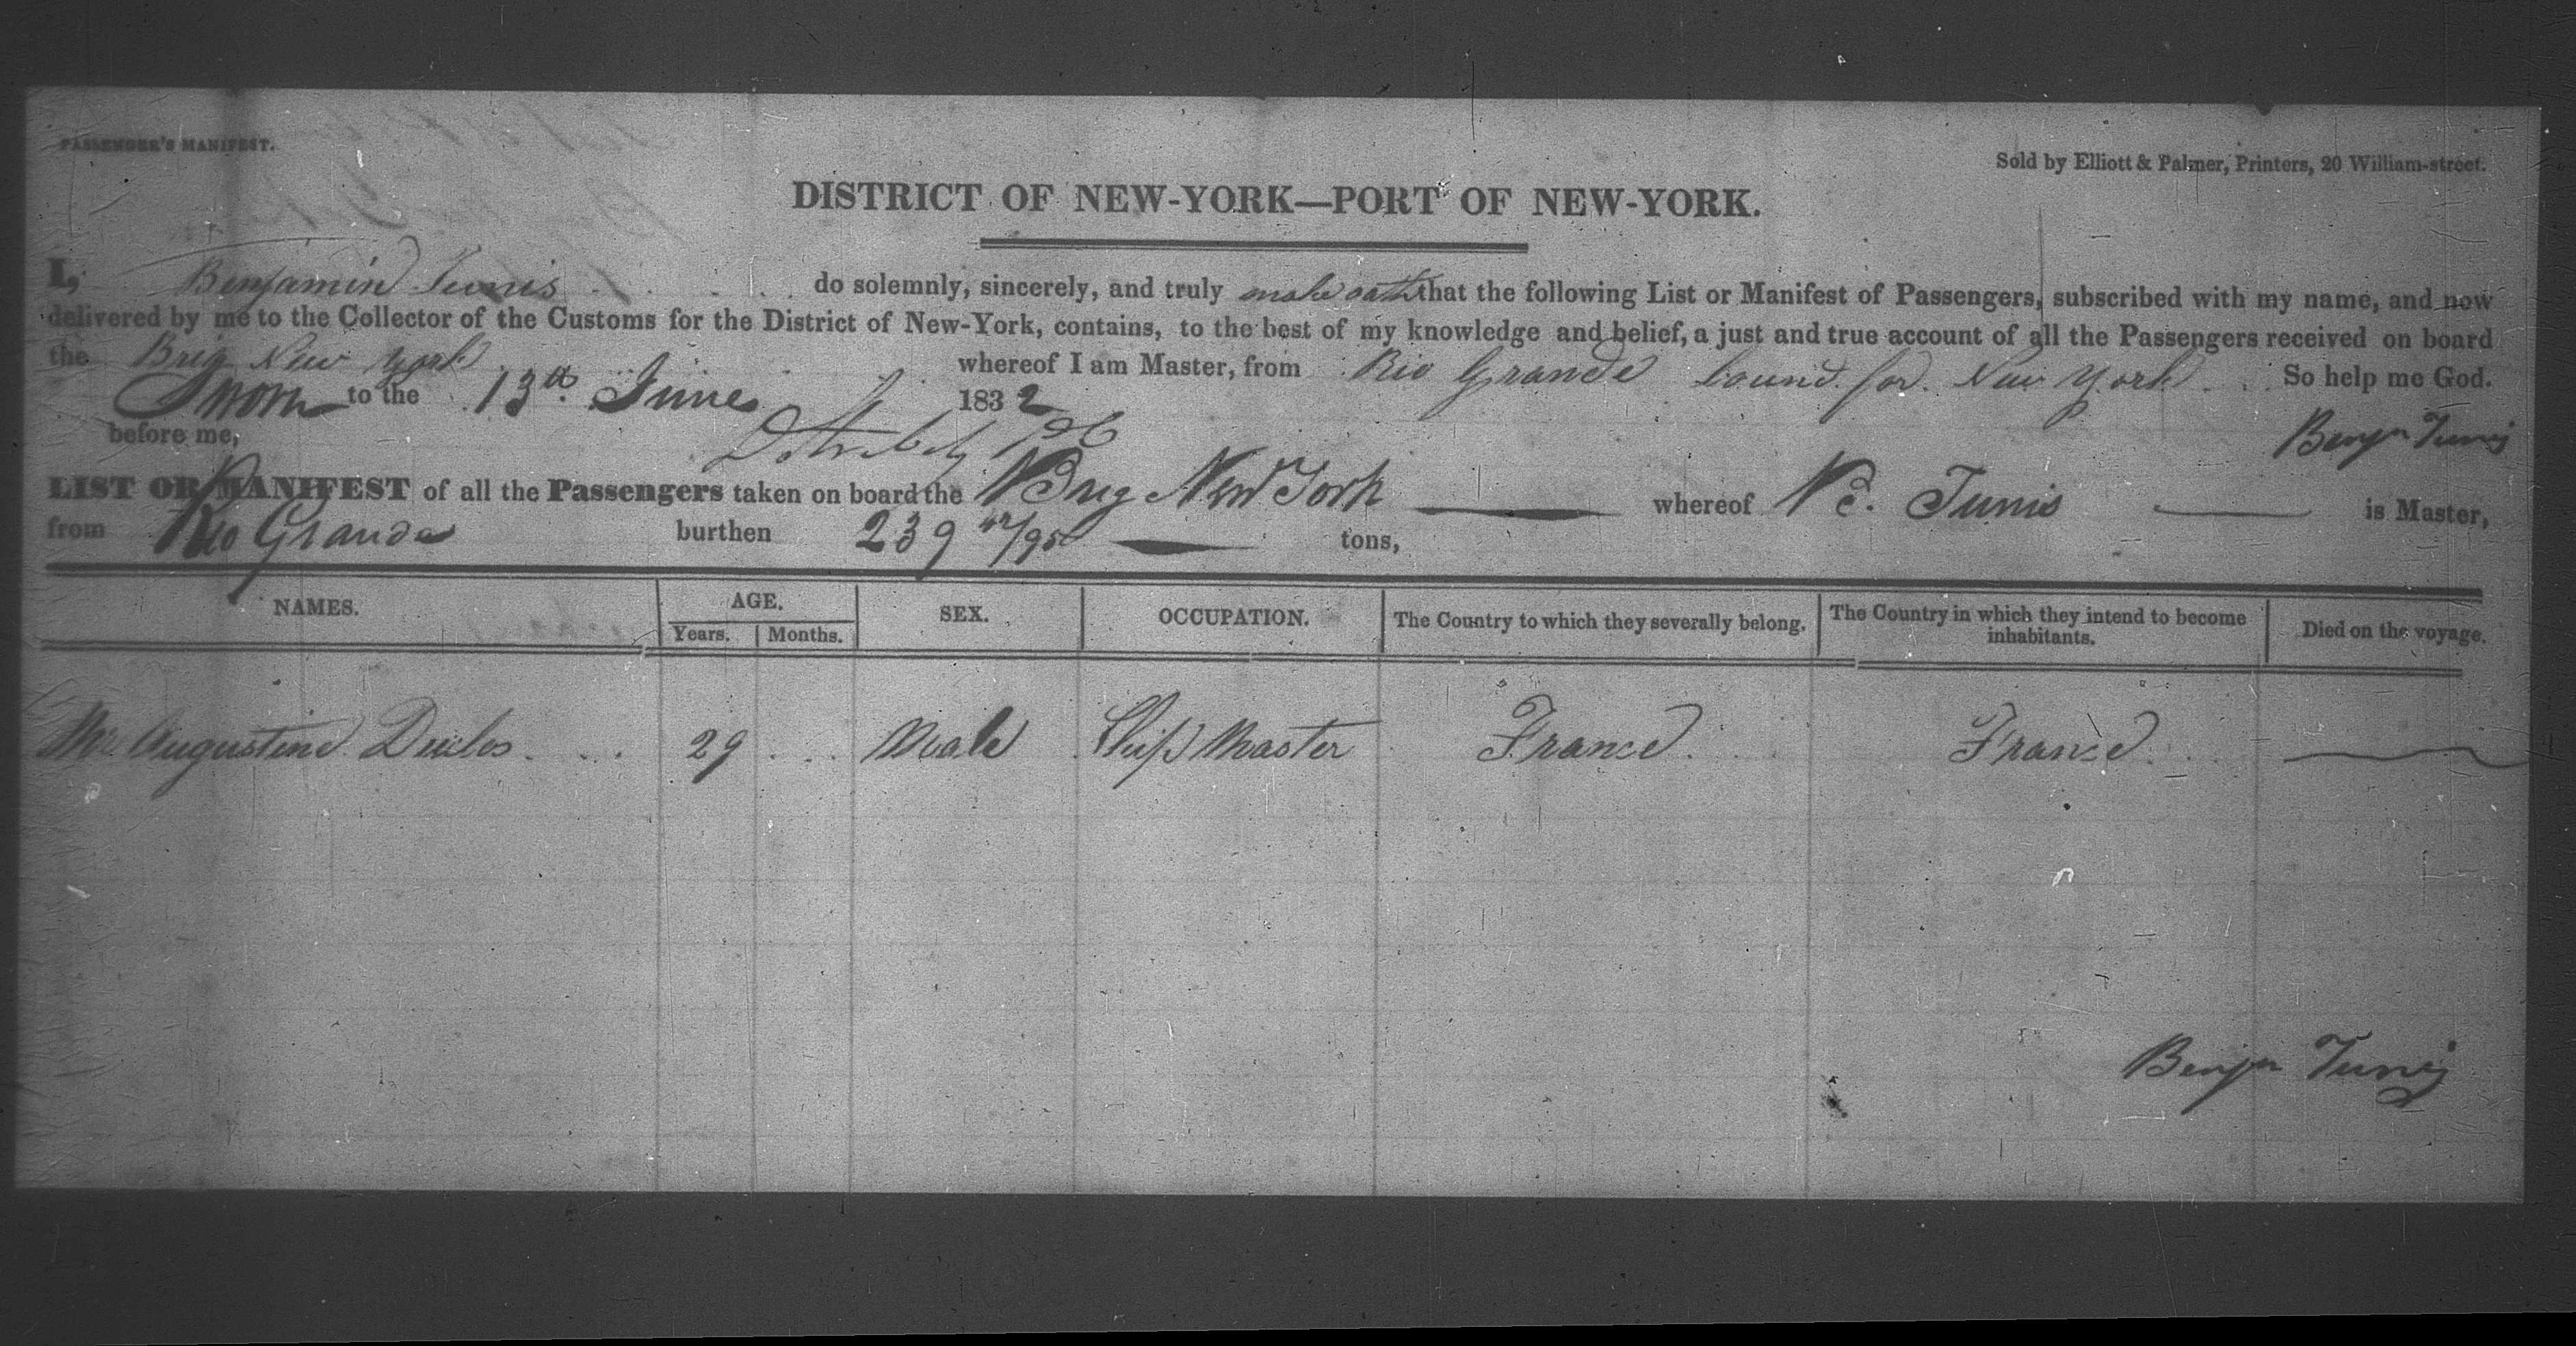 PASSENGER'S MANIFEST.
Sold by Elliott & Palmer, Printers, 20 William-street.
DISTRICT OF NEW-YORK—PORT OF NEW-YORK.
I, Benjamin Tunis do solemnly, sincerely, and truly make oath that the following List or Manifest of Passengers, subscribed with my name, and now
delivered by me to the Collector of the Customs for the District of New-York, contains, to the best of my knowledge and belief, a just and true account of all the Passengers received on board
the Brig New York whereof I am Master, from Rio Grande bound for New York So help me God.
Sworn to the 13th June 1832
before me, Benjn Tunis
LIST OR MANIFEST of all the Passengers taken on board the Brig New York whereof Tunis is Master,
from Rio Grande burthen 239 /95 tons,
NAMES. AGE. SEX. OCCUPATION. The Country to which they severally belong. The Country in which they intend to become inhabitants. Died on the voyage.
Years. Months.
Mr. Augustine Duclos 29 Male Ship Master France France
Benjn Tunis